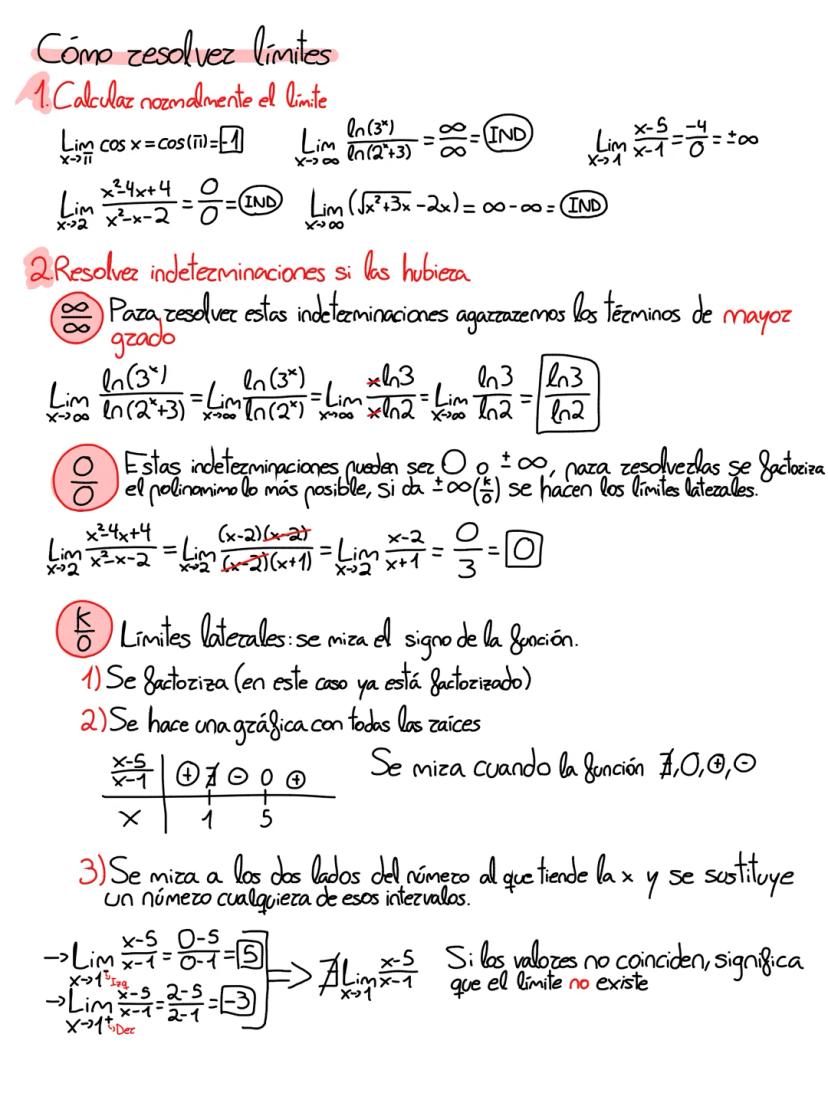 Cómo resolver límites
1. Calcular normalmente el límite
Lim x→π cos x = cos(π) = -1    Lim x→∞ ln(3^x)/ln(2^x+3) = ∞/∞ = IND    Lim x→1 x-5/x-1 = -4/0 = ±∞
Lim x→2 x²-4x+4/x²-x-2 = 0/0 = IND    Lim x→∞ (√x²+3x - 2x) = ∞-∞ = IND
2. Resolver indeterminaciones si las hubiera
∞/∞ Para resolver estas indeterminaciones agarraremos los términos de mayor
grado
Lim x→∞ ln(3^x)/ln(2^x+3) = Lim x→∞ ln(3^x)/ln(2^x) = Lim x→∞ xln3/xln2 = Lim x→∞ ln3/ln2 = ln3/ln2
0/0 Estas indeterminaciones pueden ser 0 o ±∞, para resolverlas se factoriza
el polinanimo lo más posible, si da ±∞(k/0) se hacen los límites laterales.
Lim x→2 x²-4x+4/x²-x-2 = Lim x→2 (x-2)(x-2)/(x-2)(x+1) = Lim x→2 x-2/x+1 = 0/3 = 0
k/0 Límites laterales: se mira el signo de la función.
1) Se factoriza (en este caso ya está factorizado)
2) Se hace una gráfica con todas las raíces
x-5/x-1 | ⊕ ∄ ⊖ 0 ⊕    Se mira cuando la función ∄,0,⊕,⊖
x | 1 5
3) Se mira a los dos lados del número al que tiende la x y se sustituye
un número cualquiera de esos intervalos.
→ Lim x→1⁻ x-5/x-1 = 0-5/0-1 = 5 ⇒ ∄ Lim x→1 x-5/x-1    Si los valores no coinciden, significa
↳Izq    que el límite no existe
→ Lim x→1⁺ x-5/x-1 = 2-5/2-1 = -3
↳Der